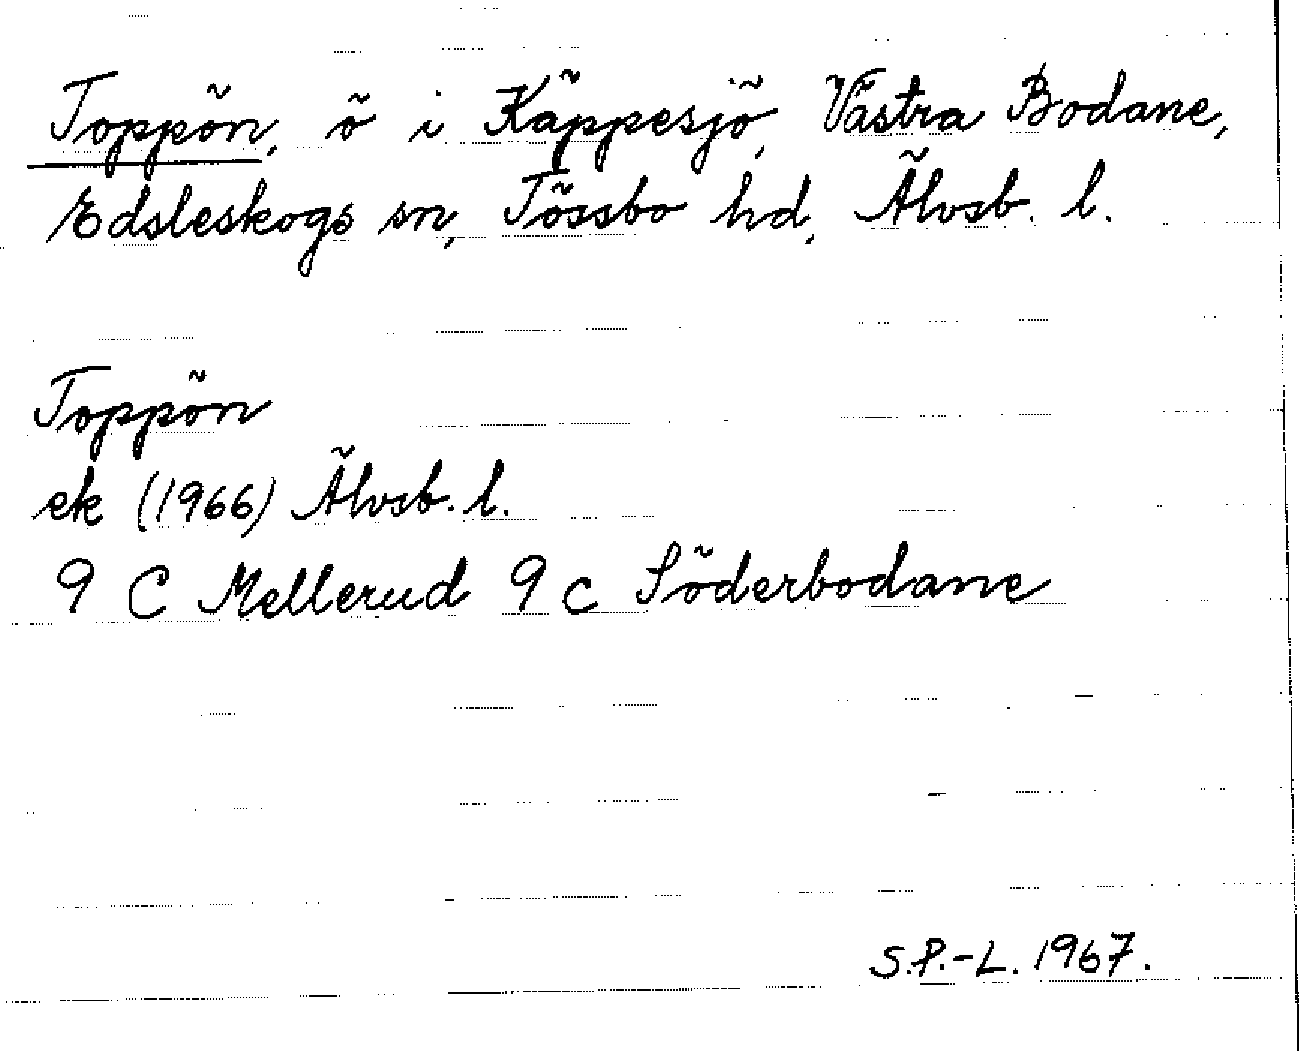 Toppön, ö i Käppesjö, Västra Bodane,
Edsleskogs sn, Tössbo hd, Älvsb. l.
Toppön
ek (1966) Älvsb. l.
9 C Mellerud 9 c Söderbodane
S.P.-L. 1967.